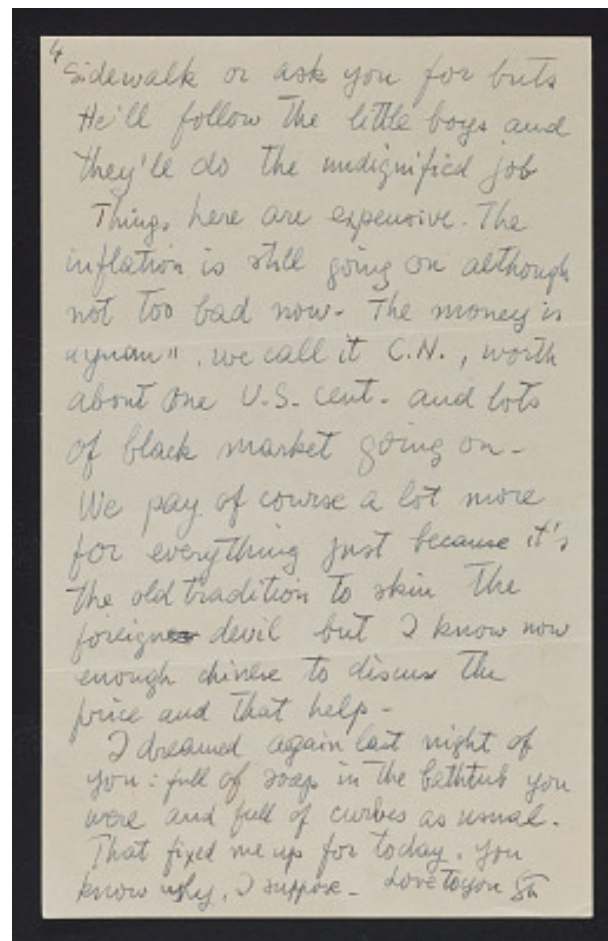 4
Sidewalk or ask you for buts
He'll follow the little boys and
they'll do the undignified job
Things here are expensive. The
inflation is still going on although
not too bad now. The money is
"yuan", we call it C.N., worth
about one U.S. cent. and lots
of black market going on -
We pay of course a lot more
for everything just because it's
the old tradition to skin the
foreign devil but I know now
enough chinese to discuss the
price and that help -
I dreamed again last night of
you: full of soap in the bathtub you
were and full of curves as usual.
That fixed me up for today. You
know why, I suppose - Love to you